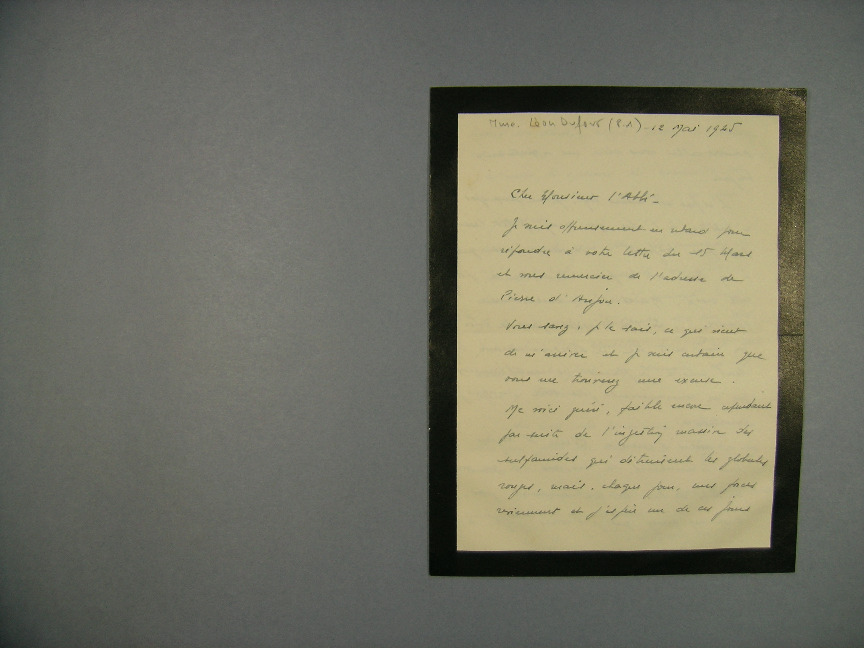 Mme. Léon Dufour (P.1) - 12 Mai 1945
Cher Monsieur l'Abbé -
Je suis affreusement en retard pour
répondre à votre lettre du 15 Mars
et vous remercier de l'adresse de
Pierre d'Anjou.
Vous savez, je le sais, ce qui vient
de m'arriver et je suis certain que
vous me trouverez une excuse.
Me voici guéri, faible encore cependant
par suite de l'ingestion massive des
sulfamides qui détruisent les globules
rouges, mais, chaque jour, mes forces
reviennent et j'espère un de ces jours